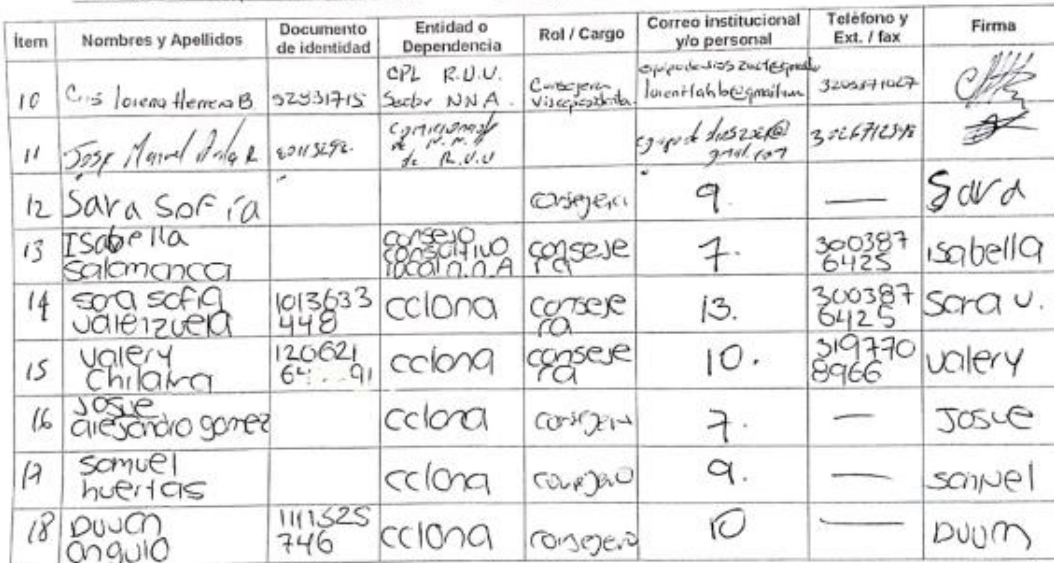 Ítem Nombres y Apellidos Documento de identidad Entidad o Dependencia Rol / Cargo Correo institucional y/o personal Teléfono y Ext. / fax Firma
10 Lorena Herrera B. 52331715 CPL R.U.U. Sector NNA. Consejera
11 Jose Manuel R. de R.U.U
12 Sara Sofía consejera 9. — Sara
13 Isabella salamanca consejo consultivo local n.n.A consejera 7. 300387 6425 isabella
14 sara sofia valenzuela 1013633 448 cclona consejera 13. 300387 6425 Sara v.
15 valery Chilatra 120621 cclona consejera 10. 319770 8966 valery
16 Josue alejandro gomez cclona consejero 7. — Josue
17 samuel huertas cclona consejero 9. — samuel
18 angulo 1111525 746 cclona consejero 10 —